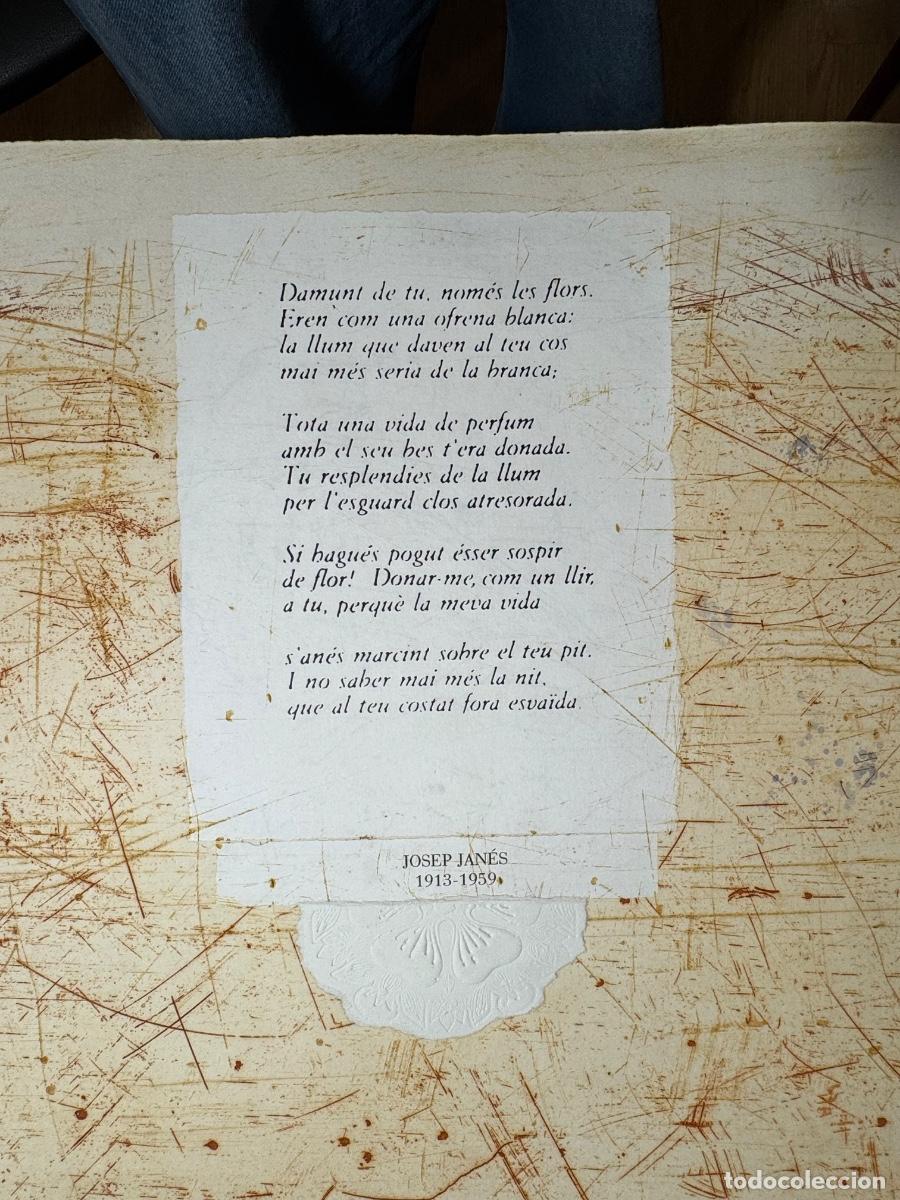 Damunt de tu, només les flors.
Eren com una ofrena blanca:
la llum que daven al teu cos
mai més seria de la branca;
Tota una vida de perfum
amb el seu bes t'era donada.
Tu resplendies de la llum
per l'esguard clos atresorada.
Si hagués pogut ésser sospir
de flor! Donar-me, com un llir,
a tu, perquè la meva vida
s'anés marcint sobre el teu pit.
I no saber mai més la nit,
que al teu costat fora esvaïda.
JOSEP JANÉS
1913-1959
todocoleccion